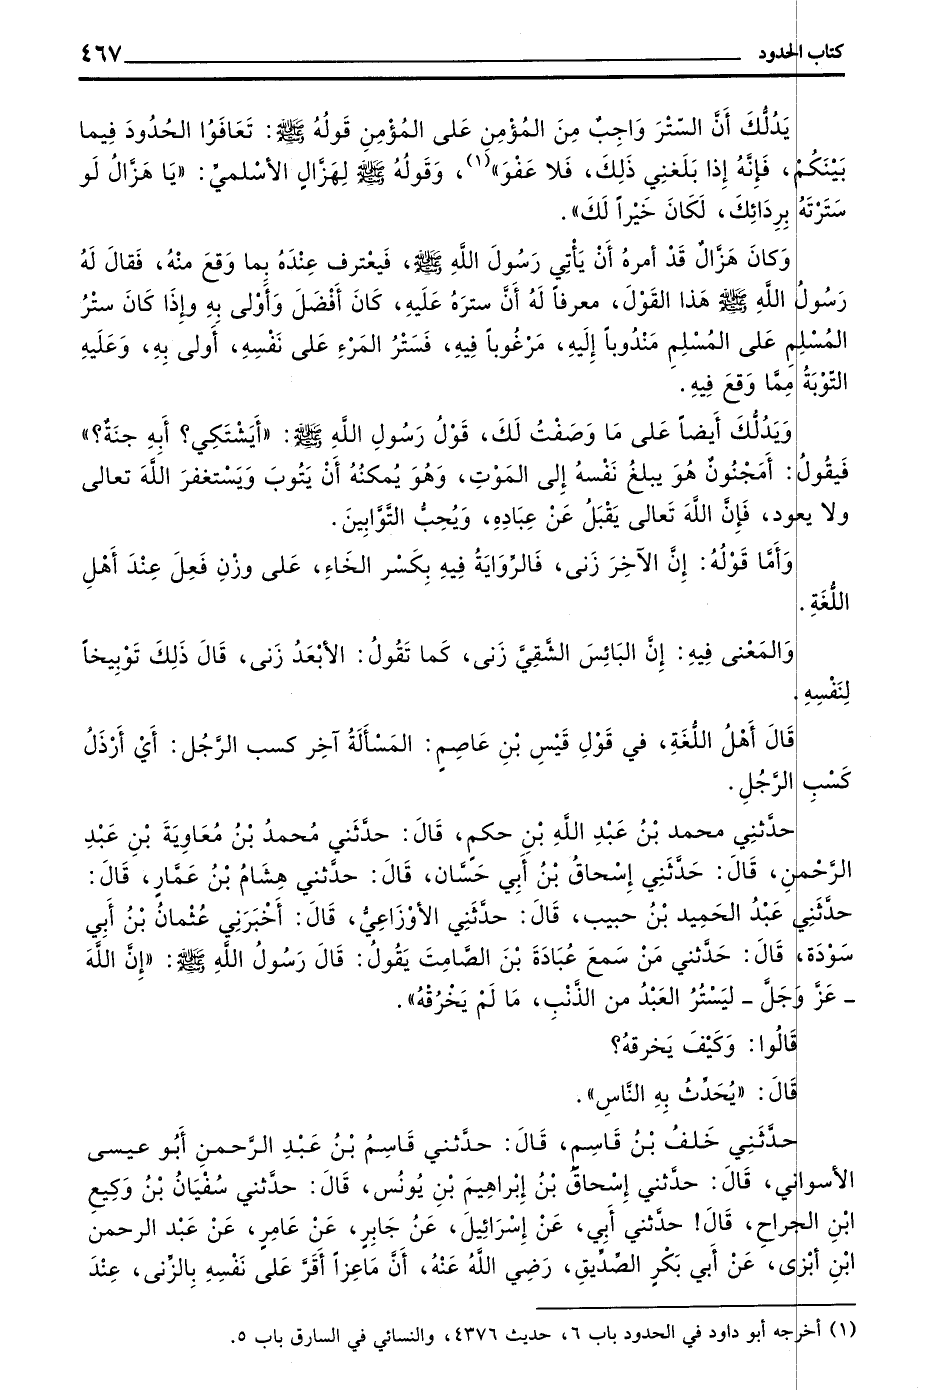 كتاب الحدود ٤٦٧
يَدُلُّكَ أَنَّ السّتْرَ وَاجِبٌ مِنَ المُؤْمِنِ عَلى المُؤْمِنِ قَولُهُ ﷺ: تَعَافَوُا الحُدُودَ فِيما
بَيْنَكُمْ، فَإِنَّهُ إِذا بَلغَنِي ذَلِكَ، فَلا عَفْوَ»(١)، وَقَولُهُ ﷺ لِهَزَّالٍ الأسْلميِّ: «يَا هَزَّالُ لَو
سَتَرْتَهُ بِرِدَائِكَ، لَكَانَ خَيْراً لَكَ».
وَكانَ هَزَّالٌ قَدْ أمرهُ أَنْ يَأْتِي رَسُولَ اللَّهِ ﷺ، فَيعْترف عِنْدَهُ بِما وَقعَ منْهُ، فَقالَ لَهُ
رَسُولُ اللَّهِ ﷺ هَذا القَوْلَ، معرفاً لَهُ أَنَّ سترَهُ عَلَيهِ، كَانَ أَفْضَلَ وَأَوْلى بِهِ وإِذَا كَانَ ستْرُ
المُسْلِمِ عَلى المُسْلمِ مَنْدُوباً إِلَيهِ، مَرْغُوباً فِيهِ، فَسَتْرُ المَرْءِ عَلى نَفْسِهِ، أَولى بِهِ، وَعَلَيهِ
التّوْبَةُ مِمَّا وَقعَ فِيهِ.
وَيَدُلُّكَ أَيضاً عَلى مَا وَصَفْتُ لَكَ، قَوْلُ رَسُولِ اللَّهِ ﷺ: «أَيَشْتَكِي؟ أَبِهِ جنَةٌ؟»
فَيقُولُ: أَمَجْنُونٌ هُوَ يبلغُ نَفْسهُ إِلى المَوْتِ، وَهُوَ يُمكنُهُ أَنْ يَتُوبَ وَيَسْتغفرَ اللَّهَ تعالى
ولا يعود، فَإِنَّ اللَّهَ تَعالى يَقْبَلُ عَنْ عِبَادِهِ، وَيُحِبُّ التَّوَّابِينَ.
وَأَمَّا قَوْلُهُ: إِنَّ الآخِرَ زَنى، فَالرِّوَايَةُ فِيهِ بِكَسْر الخَاءِ، عَلى وزْنِ فَعِلَ عِنْدَ أَهْلِ
اللُّغَةِ.
وَالمَعْنى فِيهِ: إِنَّ البَائِسَ الشَّقِيَّ زَنى، كَما تَقُولُ: الأبْعَدُ زَنى، قَالَ ذَلِكَ تَوْبِيخاً
لِنَفْسِهِ.
قَالَ أَهْلُ اللُّغَةِ، في قَوْلِ قَيْسِ بْنِ عَاصِمٍ: المَسْأَلَةُ آخِر كسب الرَّجُل: أَيْ أَرْذَلُ
كَسْبِ الرَّجُلِ.
حدَّثنِي محمد بْنُ عَبْدِ اللَّهِ بْنِ حكمٍ، قَالَ: حدَّثَني مُحمدُ بْنُ مُعَاوِيَةَ بْنِ عَبْدِ
الرَّحْمنِ، قَالَ: حَدَّثَنِي إِسْحاقُ بْنُ أَبِي حَسَّان، قَالَ: حدَّثني هِشَامُ بْنُ عَمَّارٍ، قَالَ:
حدَّثَنِي عَبْدُ الحَمِيد بْنُ حبيب، قَالَ: حدَّثَنِي الأوْزَاعِيُّ، قَالَ: أَخْبَرَنِي عُثْمانُ بْنُ أَبِي
سَوْدَة، قَالَ: حَدَّثني مَنْ سَمعَ عُبَادَةَ بْنَ الصَّامتَ يَقُولُ: قَالَ رَسُولُ اللَّهِ ﷺ: «إِنَّ اللَّهَ
ـ عَزَّ وَجَلَّ ـ ليَسْتُرُ العَبْدُ من الذَّنْبِ، مَا لَمْ يَخْرُقْهُ».
قَالُوا: وَكَيْفَ يَخرقهُ؟
قَالَ: «يُحَدِّثُ بِهِ النَّاسِ».
حدَّثَنِي خَلفُ بْنُ قَاسِم، قَالَ: حدَّثني قَاسِمُ بْنُ عَبْدِ الرَّحمنِ أَبُو عيسى
الأسواني، قَالَ: حدَّثني إِسْحاقُ بْنُ إِبْراهِيمَ بْنِ يُونُس، قَالَ: حدَّثني سُفْيَانُ بْنُ وَكِيعِ
ابْنِ الجراحِ، قَالَ! حدَّثني أَبِي، عَنْ إِسْرَائِيلَ، عَنْ جَابِرٍ، عَنْ عامِرٍ، عَنْ عَبْد الرحمن
ابْنِ أبْزى، عَنْ أَبي بَكْرٍ الصِّدِّيقِ، رَضِي اللَّهُ عَنْهُ، أَنَّ مَاعِزاً أَقَرَّ عَلى نَفْسِهِ بِالزّنى، عِنْدَ
(١) أخرجه أبو داود في الحدود باب ٦، حديث ٤٣٧٦، والنسائي في السارق باب ٥.